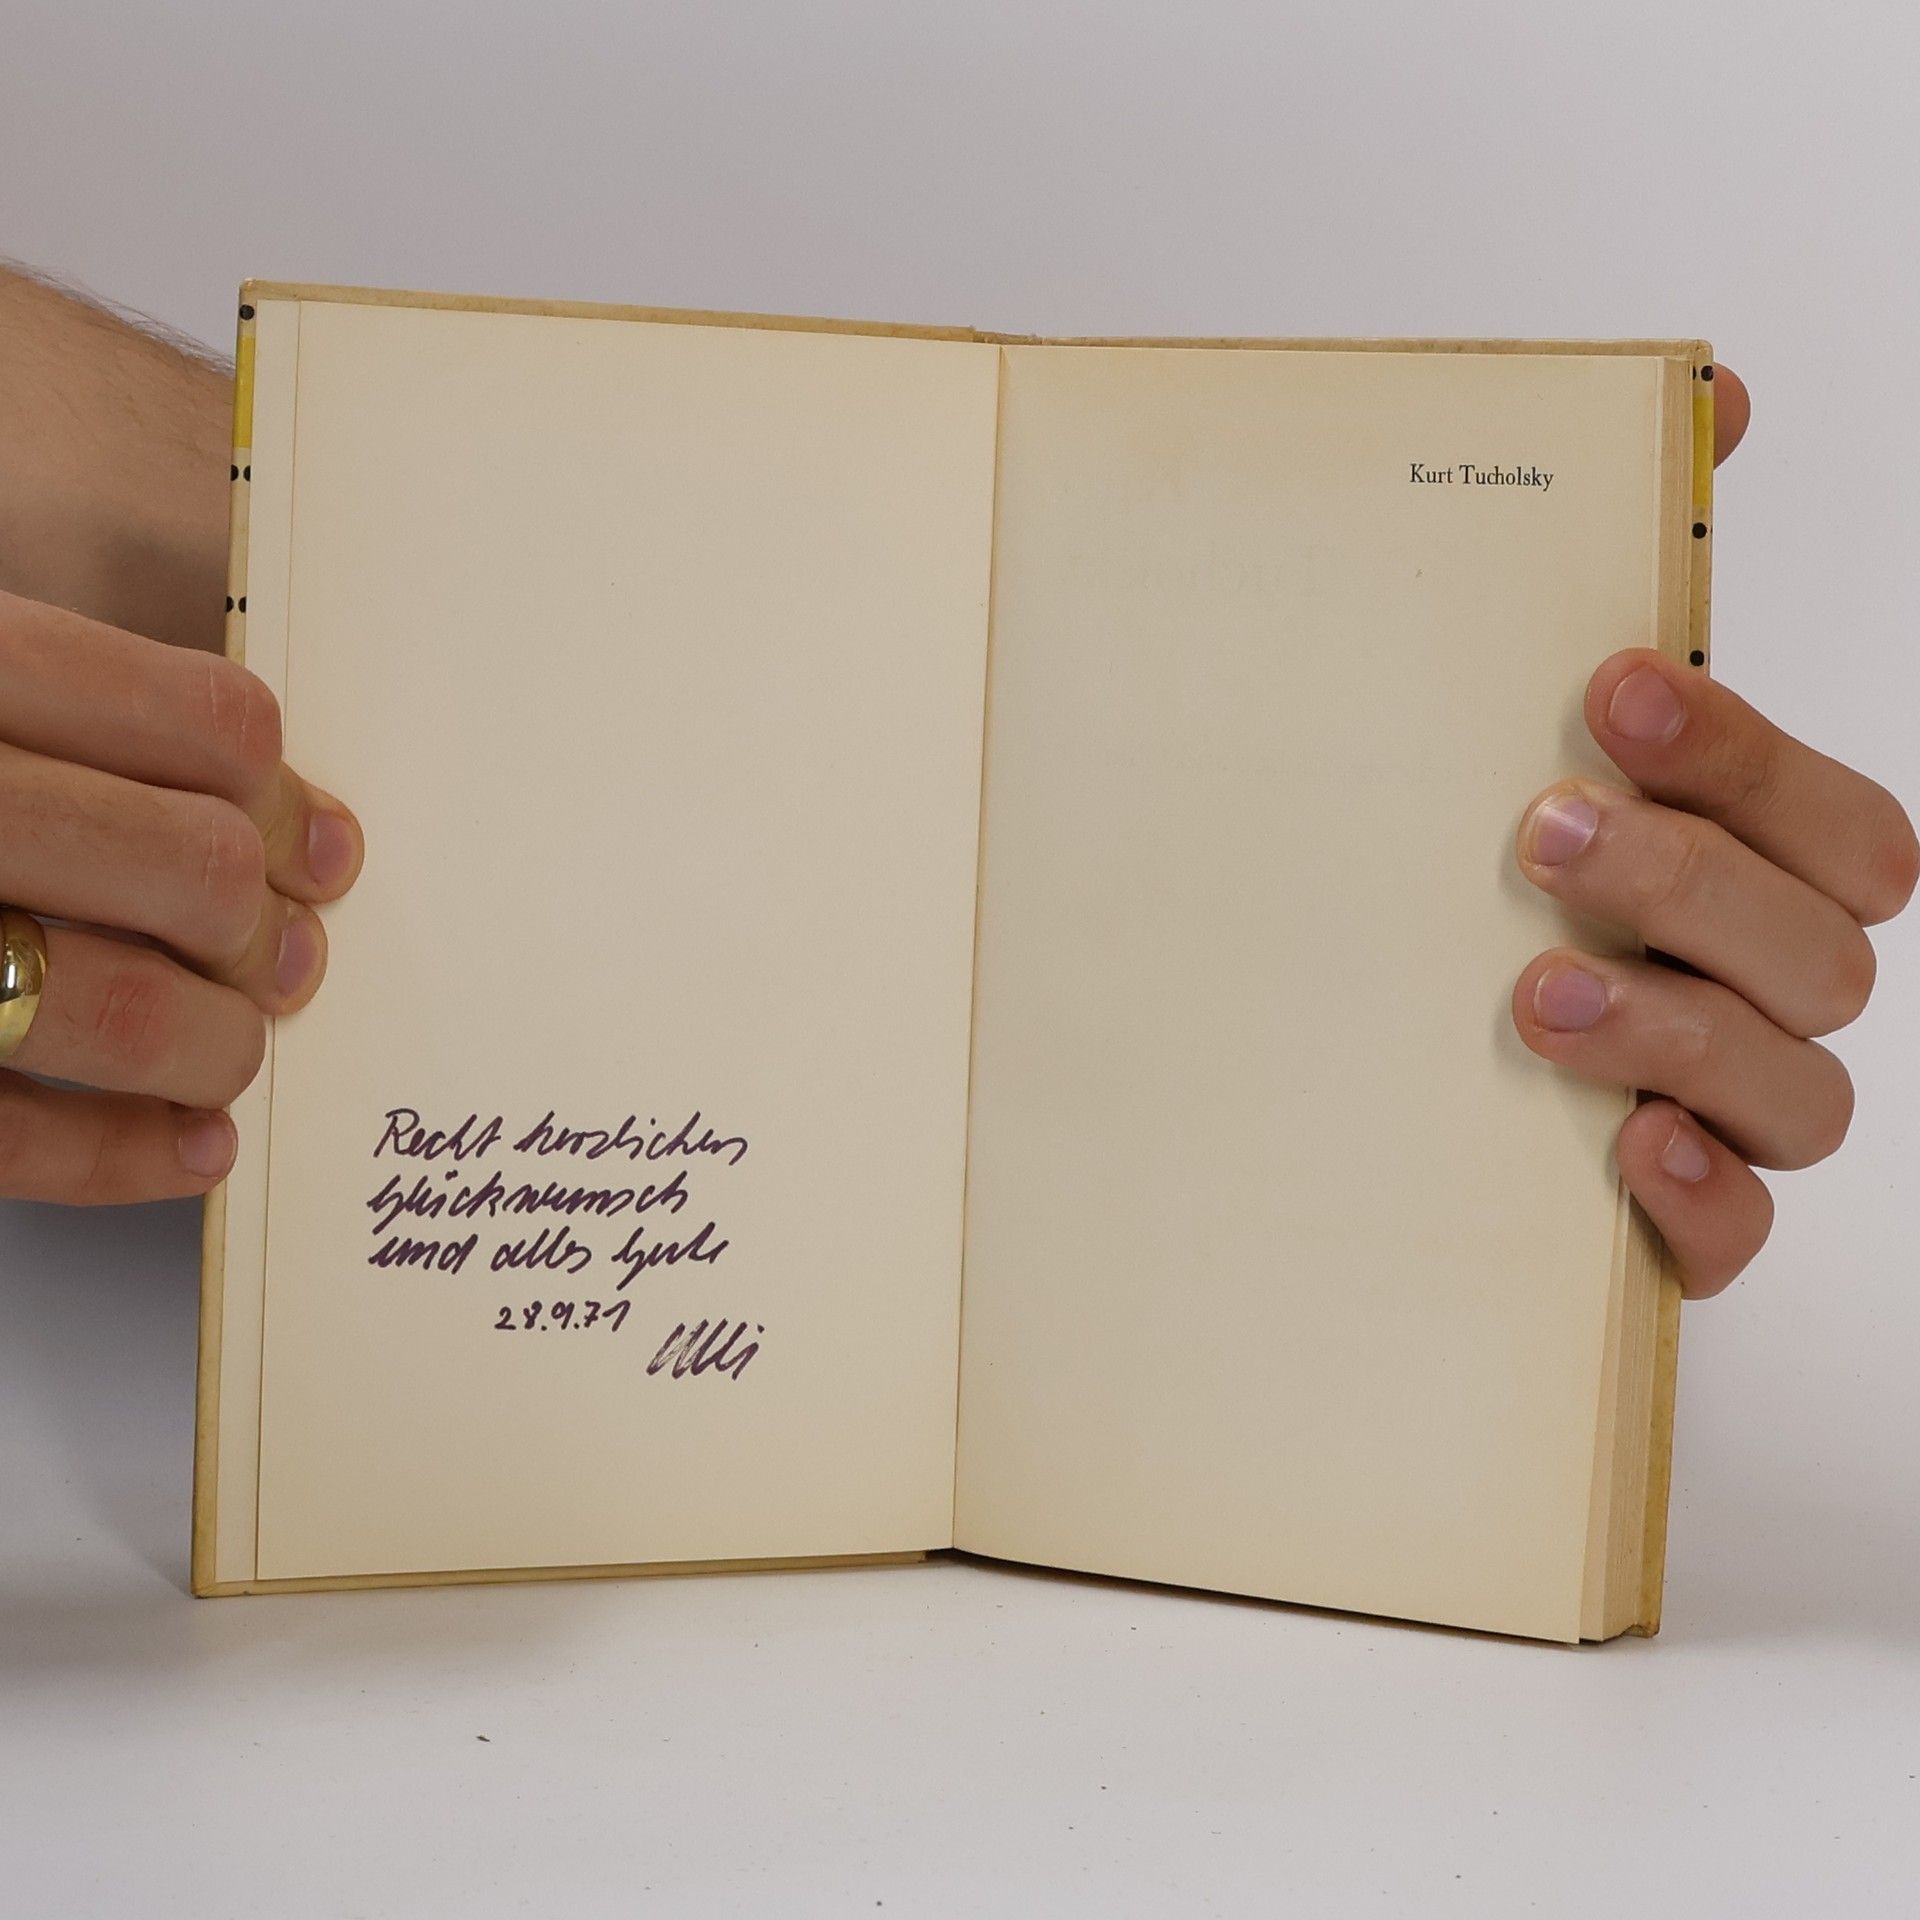 Recht herzlichen
Glückwunsch
und alles Gute
28.9.71
Ulli
Kurt Tucholsky